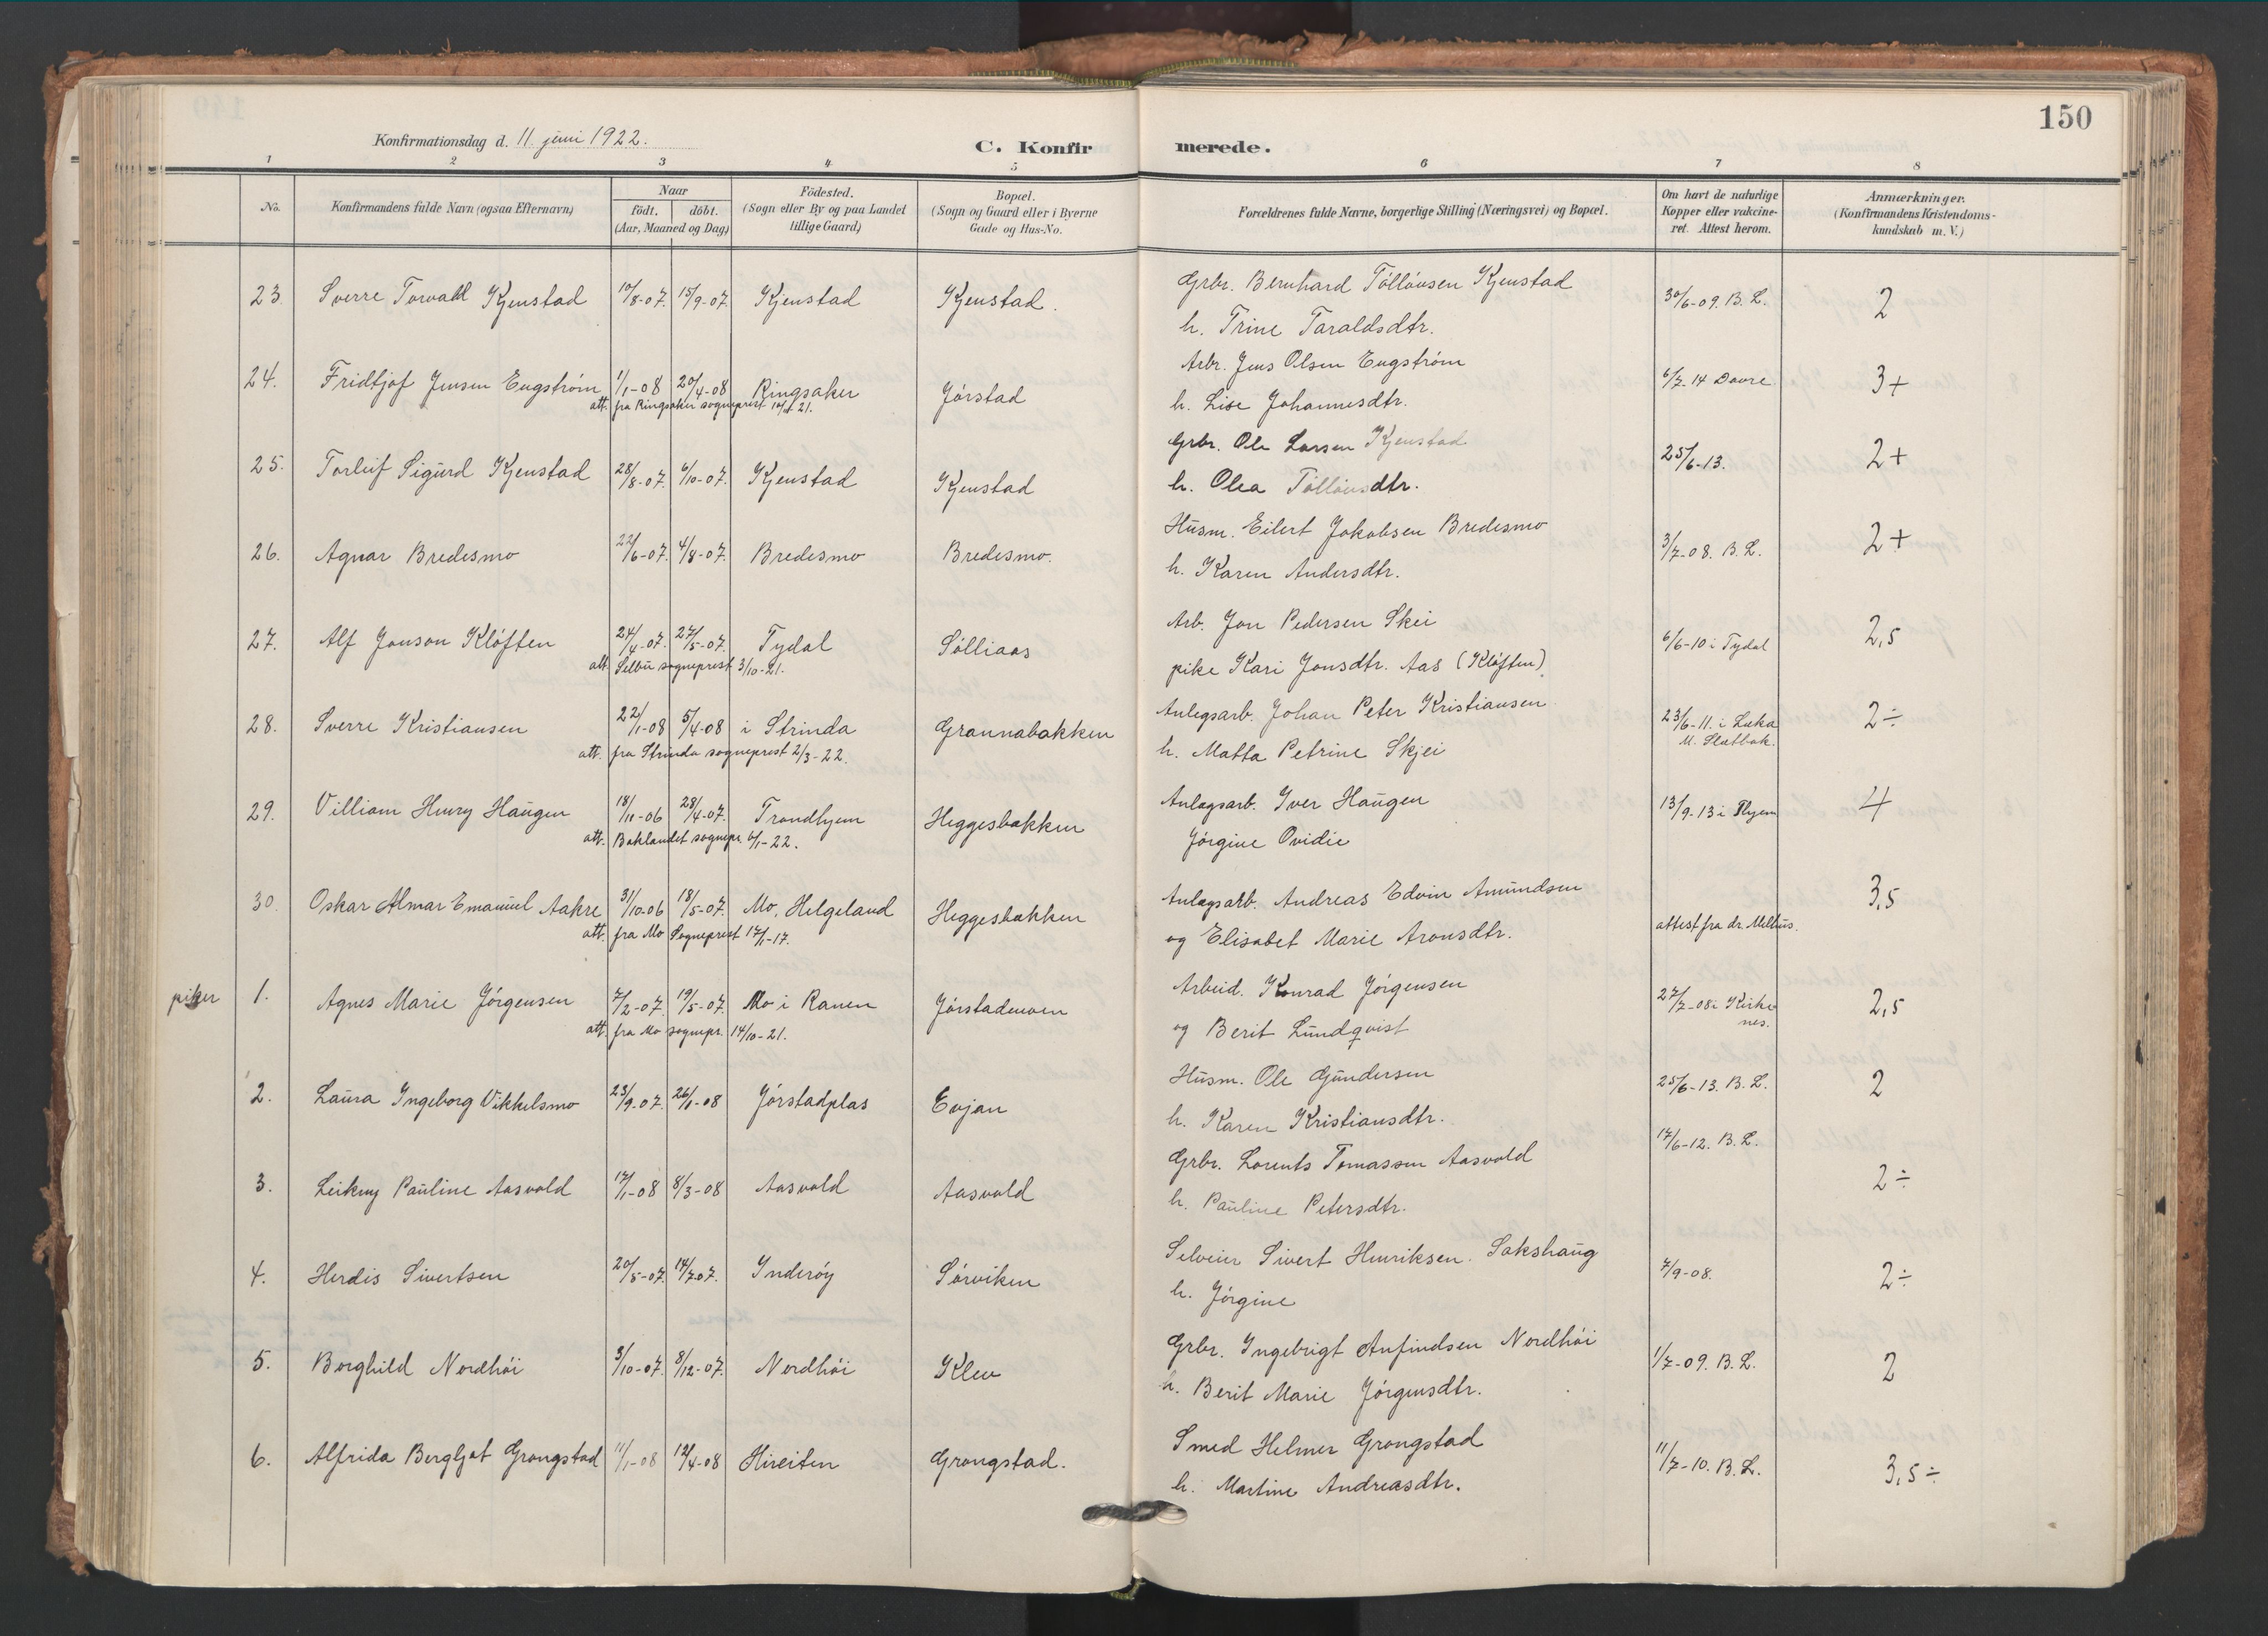 150
Konfirmationsdag d. 11. juni 1922.
C. Konfirmerede.
1 2 3 4 5 6 7 8
No.
Konfirmandens fulde Navn (ogsaa Efternavn)
Naar
födt. döbt.
(Aar, Maaned og Dag)
Födested.
(Sogn eller By og paa Landet
tillige Gaard)
Bopæl.
(Sogn og Gaard eller i Byerne
Gade og Hus-No.
Forældrenes fulde Navne, borgerlige Stilling (Næringsvei) og Bopæl.
Om havt de naturlige
Kopper eller vakcine-
ret. Attest herom.
Anmærkninger.
(Konfirmandens Kristendoms-
kundskab m. V.)
23. Sverre Torvald Kjenstad 10/8-07. 15/9-07. Kjenstad Kjenstad. Grbr. Bernhard Töllövsen Kjenstad 30/6-09. B. L. 2
h. Trine Taraldsdtr.
24. Fridtjof Jensen Engström 1/1-08 20/4-08 Ringsaker Jörstad Arbr. Jens Olsen Engström 6/7-14 Dovre 3+
att. fra Ringsaker sogneprest 21.
h. Lise Johannesdtr.
25. Torleif Sigurd Kjenstad 28/8-07. 6/10-07. Kjenstad Kjenstad Grbr. Ole Larsen Kjenstad 25/6-13. 2+
h. Olea Töllövsdtr.
26. Agnar Bredesmo 22/6-07. 4/8-07. Bredesmo Bredesmo. Husm. Eilert Jakobsen Bredesmo 3/7-08. B. L. 2+
h. Karen Andersdtr.
27. Alf Jonson Klöften 24/4-07. 27/5-07. Tydal Sölliaas Arb. Jon Pedersen Skei 6/6-10 i Tydal 2,5
att. Selbu sogneprest 3/10-21.
pike Kari Jonsdtr. Aas (Klöften).
28. Sverre Kristiansen 22/1-08 5/4-08 i Strinda Grannabakken Anlegsarb. Johan Peter Kristiansen 23/6-11. i Leka 2÷
att. fra Strinda sogneprest 2/3-22.
h. Matta Petrine Skjei
29. Villiam Henry Haugen 18/11-06 28/4-07. Trondhjem Heggesbakken Anlægsarb. Iver Haugen 13/9-13 i Thjem 4
att. Baklandet sognepr. 6/1-22.
Jörgine Ovidie
30. Oskar Almar Emanuel Aakre 31/10-06 18/5-07. Mo, Helgeland Heggesbakken Anlægsarb. Andreas Edvin Amundsen attest fra dr. Melhus. 3,5
att. fra Mo Sogneprest 17/1-17.
og Elisabet Marie Aronsdtr.
piker 1. Agnes Marie Jörgensen 7/2-07. 19/5-07. Mo i Ranen Jörstadmoen Arbeid. Konrad Jörgensen 27/7-08 i Kirke 2,5
nes.
att. fra Mo sognepr. 14/10-21.
og Berit Lundqvist
2. Laura Ingeborg Vikkelsmo 23/9-07. 26/1-08 Jörstadplas Evjan Husm. Ole Gundersen 25/6-13. B. L. 2
h. Karen Kristiansdtr.
3. Leikny Pauline Aasvold 17/1-08 8/3-08 Aasvold Aasvold Grbr. Lorents Tomassen Aasvold 17/6-12. B. L. 2÷
h. Pauline Petersdtr.
4. Herdis Sivertsen 20/5-07. 14/7-07. Inderöy Sörviken Selveier Sivert Henriksen. Sakshaug 7/9-08. 2÷
h. Jörgine
5. Borghild Nordhöi 3/10-07. 8/12-07. Nordhöi Klev Grbr. Ingebrigt Anfindsen Nordhöi 1/7-09. B. L. 2
h. Berit Marie Jörgensdtr.
6. Alfrida Bergljot Grongstad 11/1-08 12/4-08 Hireiten Grongstad. Smed Helmer Grongstad 11/7-10. B. L. 3,5÷
h. Martine Andreasdtr.